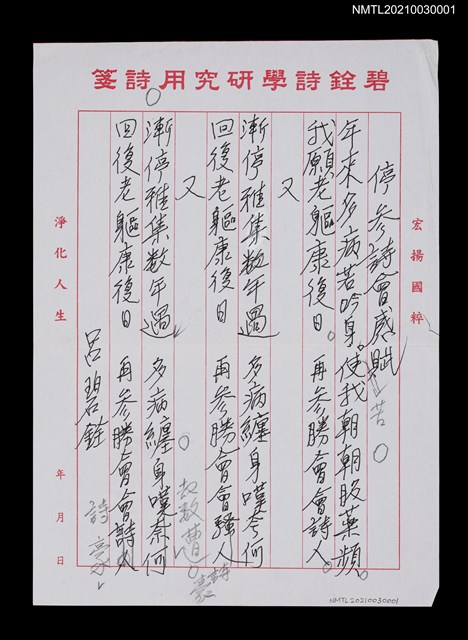 NMTL20210030001
碧銓詩學研究用詩箋
宏揚國粹
停參詩會感賦
苦
年來多病苦吟身。使我朝朝服藥頻。
我願老軀康復日。再參勝會會詩人。
又
漸停雅集数年過 多病纏身嘆奈何
回復老軀康復日 再參勝會會騷人
詩
又
漸停雅集数年過 多病纏身嘆奈何
回復老軀康復日 再參勝會會詩人
呂碧銓
詩
淨化人生
年 月 日
NMTL20210030001